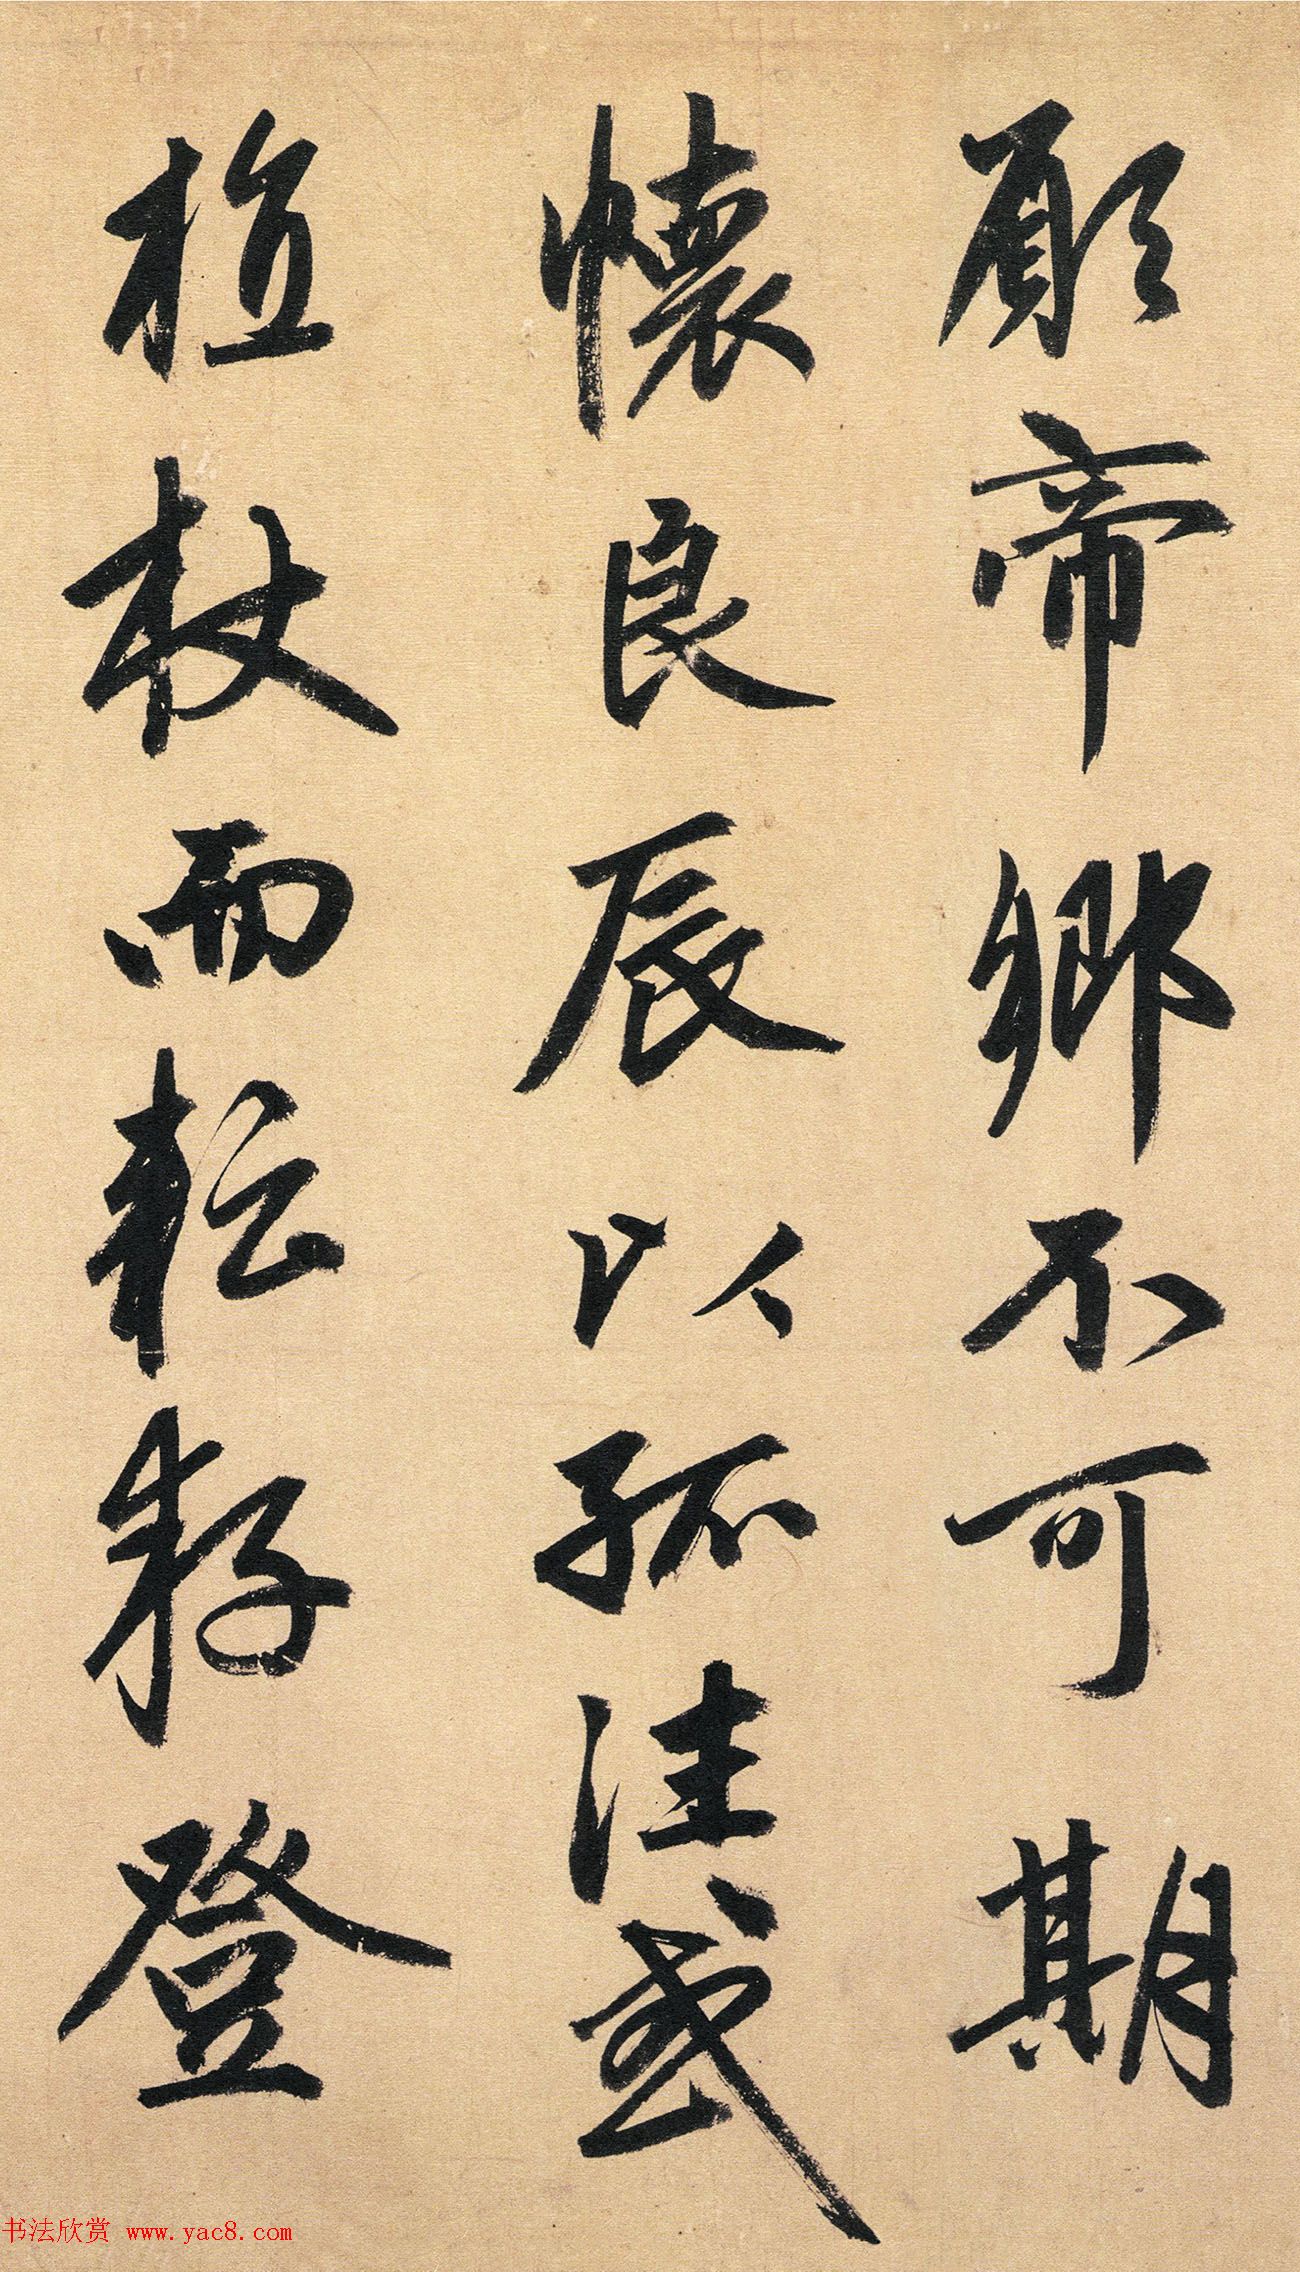 願帝鄉不可期
懷良辰以孤往或
植杖而耘耔登
书法欣赏 www.yac8.com